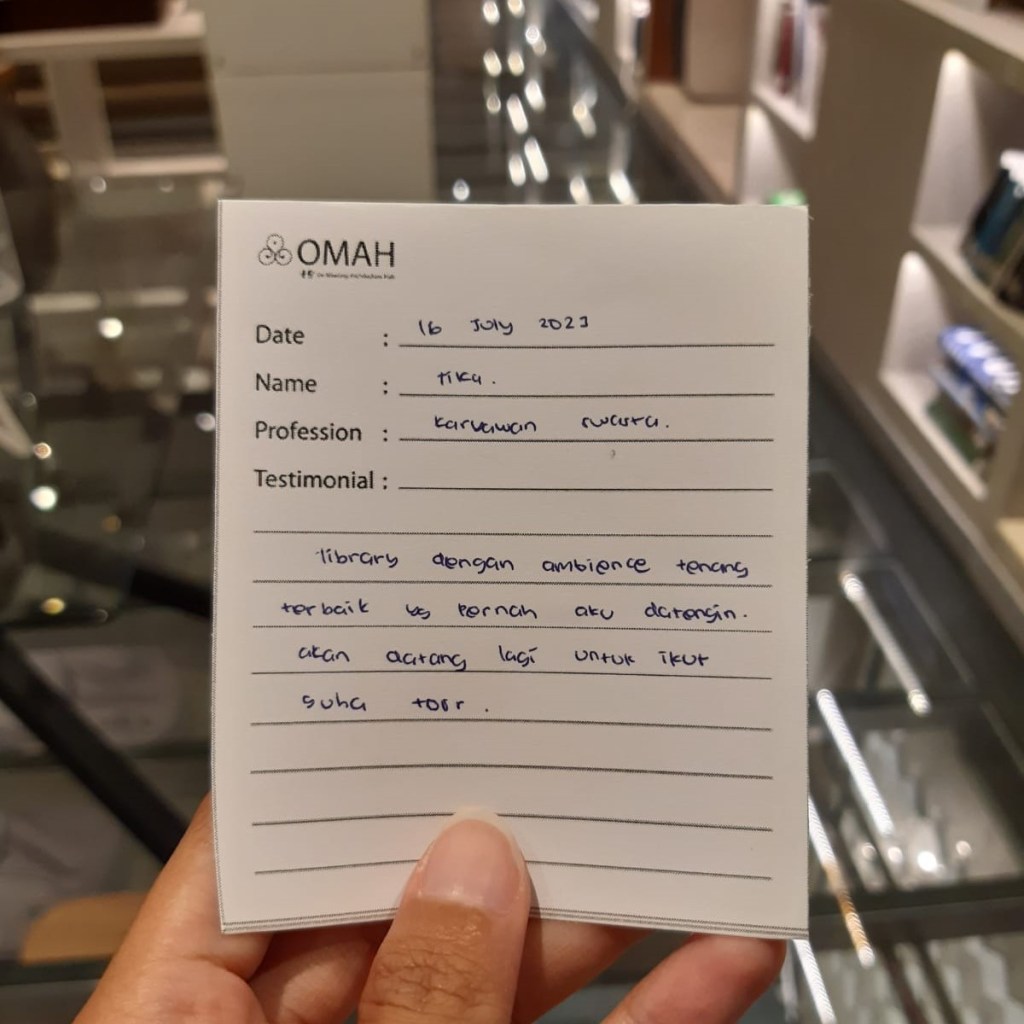 OMAH
Date : 16 July 2023
Name : tika.
Profession : karyawan swasta.
Testimonial :
library dengan ambience tenang
terbaik yg pernah aku datengin.
akan datang lagi untuk ikut
suha tour.